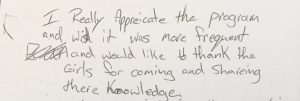 I Really Appreicate the program
and wish it was more frequent
and would like to thank the
Girls for coming and Shareing
there Knowledge.